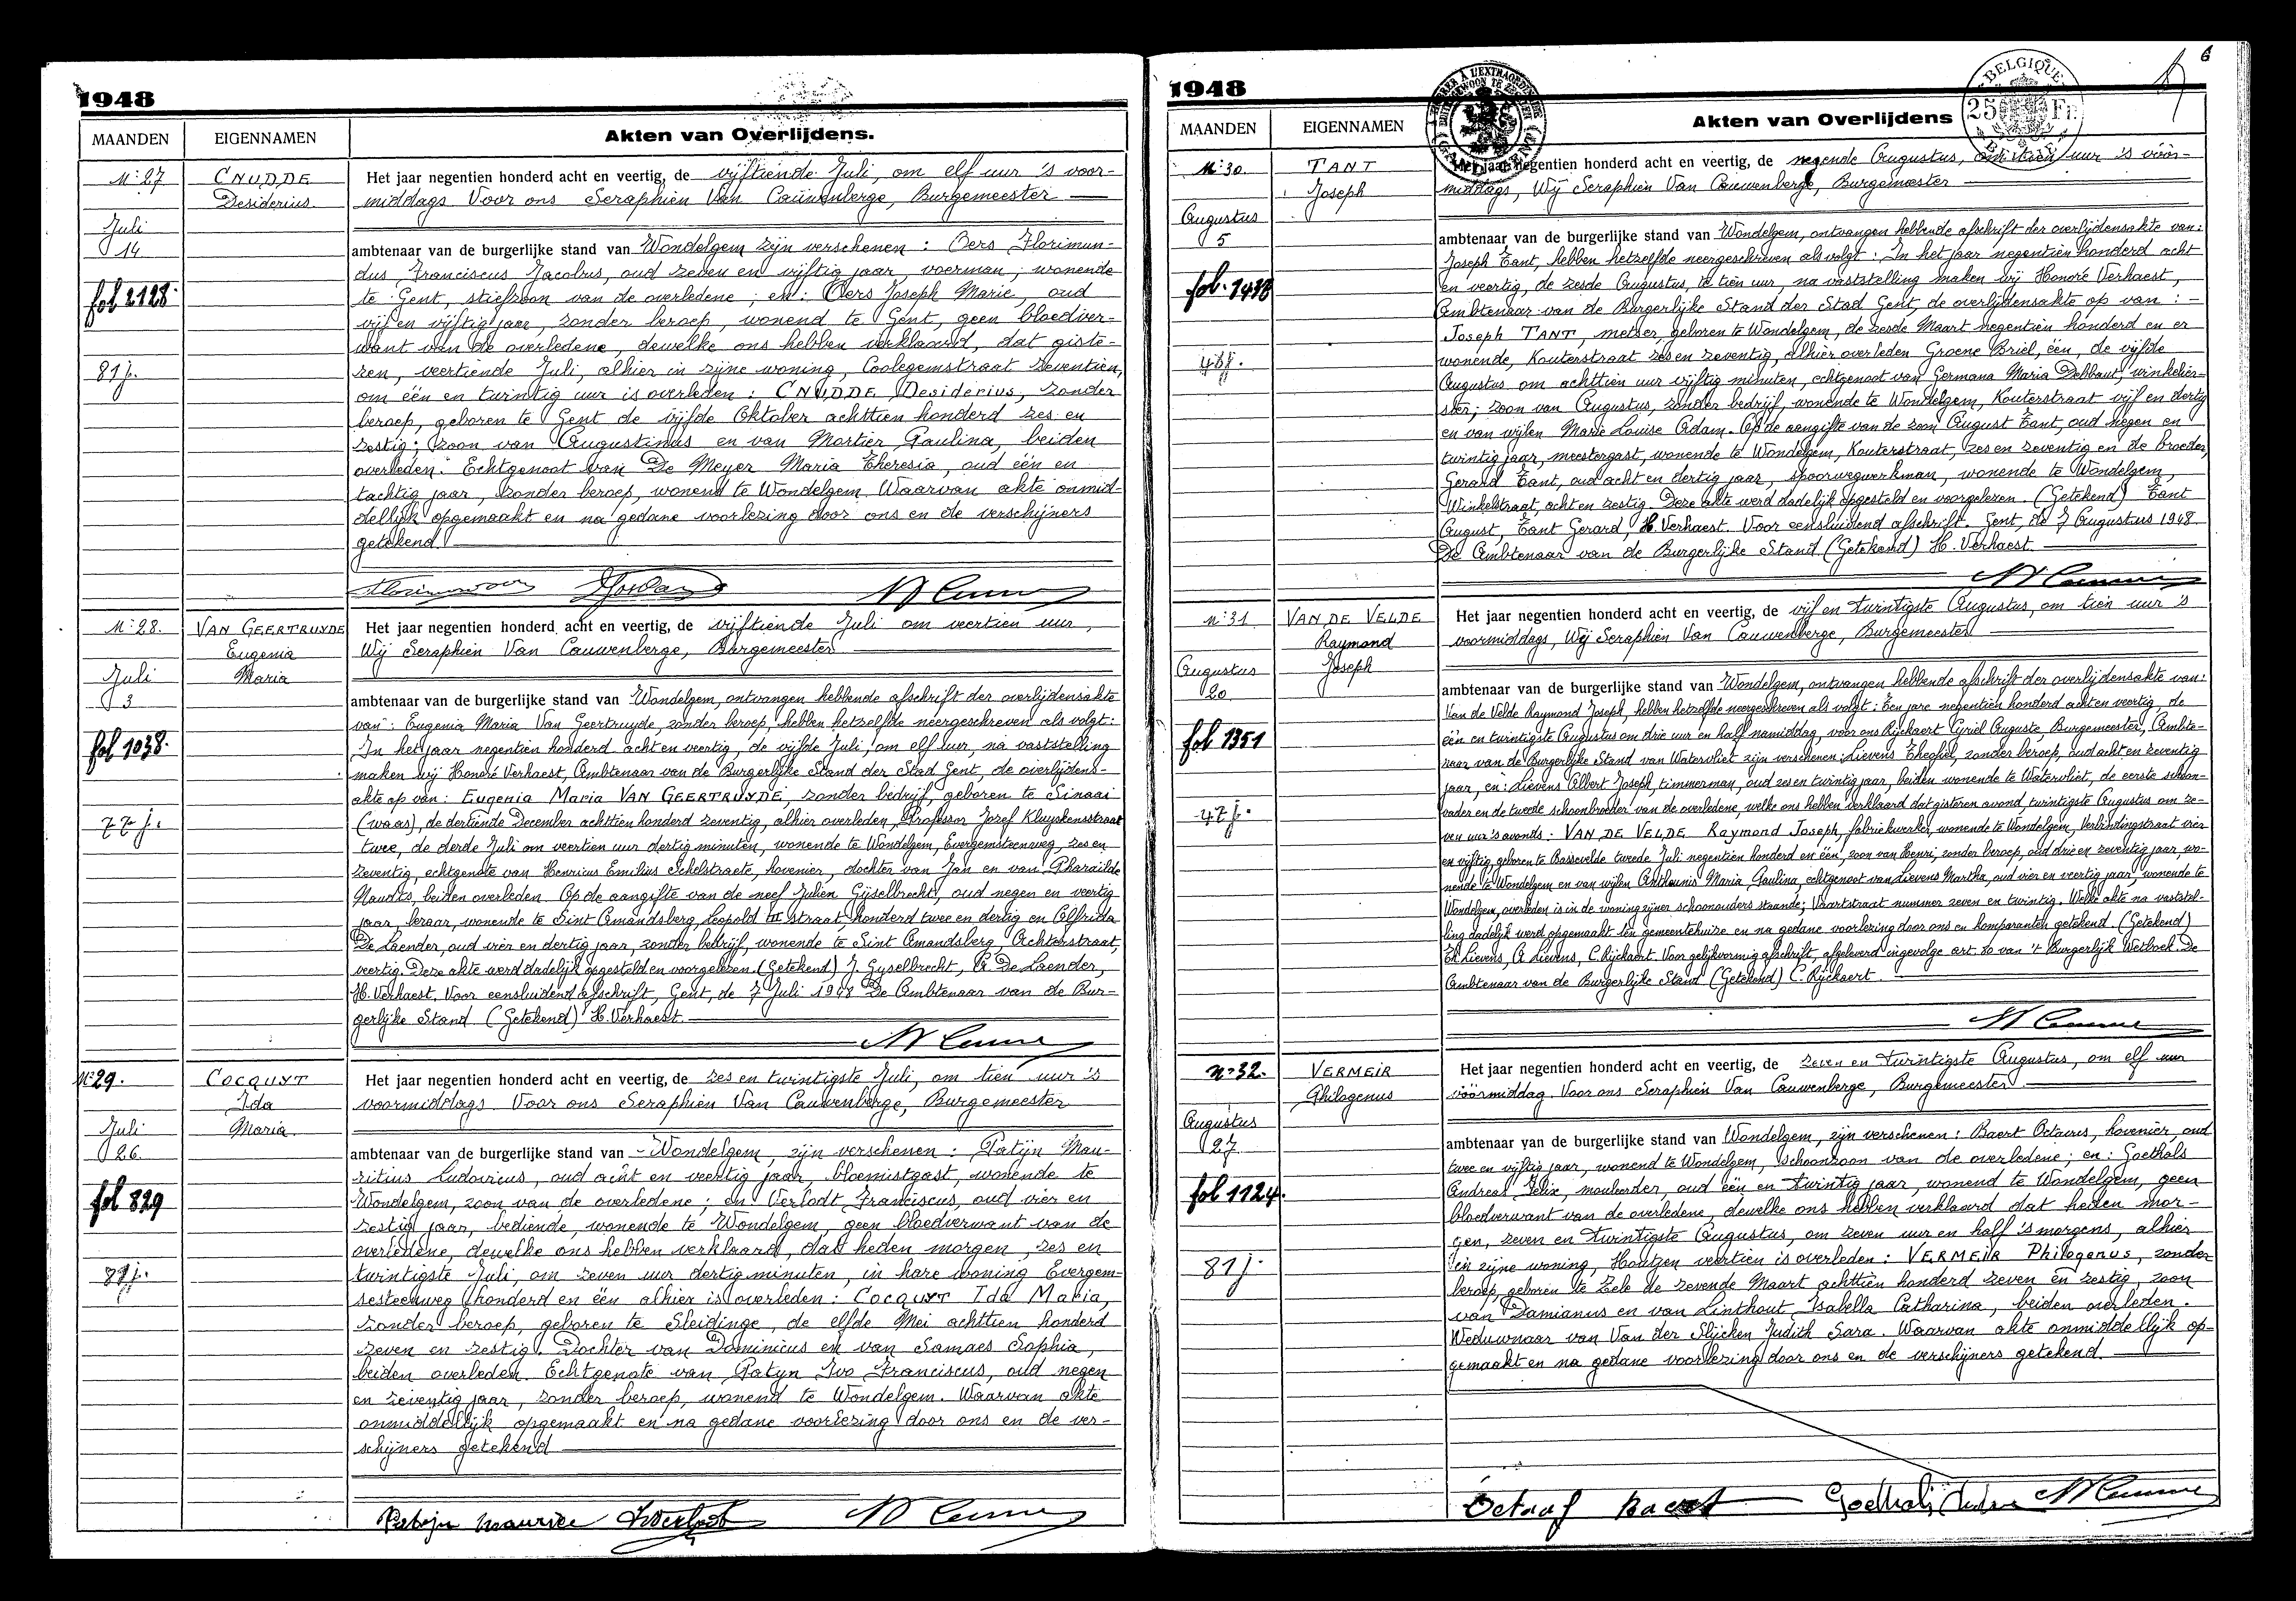 1948
MAANDEN
EIGENNAMEN
Akten van Overlijdens.
N° 27
CNUDDE
Desiderius
Juli
14
fol 2128.
81 j.
Het jaar negentien honderd acht en veertig, de vijftiende Juli, om elf uur 's voor-
middags Voor ons Seraphien Van Cauwenberge, Burgemeester
ambtenaar van de burgerlijke stand van Wondelgem zijn verschenen : Oers Florimun-
dus Franciscus Jacobus, oud zeven en vijftig jaar, voerman, wonende
te Gent, stiefzoon van de overledene ; en : Oers Joseph Marie oud
vijf en vijftig jaar, zonder beroep, wonend te Gent, geen bloedver-
want van de overledene, dewelke ons hebben verklaard, dat giste-
ren, veertiende Juli, alhier in zijne woning, Coolegemstraat zeventien,
om één en twintig uur is overleden : CNUDDE Desiderius, zonder
beroep, geboren te Gent de vijfde Oktober achttien honderd zes en
zestig ; zoon van Augustinus en van Mortier, Paulina, beiden
overleden. Echtgenoot van De Meyer Maria Theresia, oud één en
tachtig jaar, zonder beroep, wonend te Wondelgem Waarvan akte onmid-
dellijk opgemaakt en na gedane voorlezing door ons en de verschijners
getekend
N° 28.
VAN GEERTRUYDE
Eugenia
Maria
Juli
3
fol 1038.
77 j.
Het jaar negentien honderd acht en veertig, de vijftiende Juli om veertien uur,
Wij Seraphien Van Cauwenberge, Burgemeester
ambtenaar van de burgerlijke stand van Wondelgem, ontvangen hebbende afschrift der overlijdensakte
van : Eugenia Maria Van Geertruyde, zonder beroep, hebben hetzelfde neergeschreven als volgt :
In het jaar negentien honderd acht en veertig, de vijfde Juli, om elf uur, na vaststelling
maken wij Honoré Verhaest, Ambtenaar van de Burgerlijke Stand der Stad Gent, de overlijdens-
akte op van : Eugenia Maria VAN GEERTRUYDE, zonder bedrijf, geboren te Sinaai
(waas), de dertiende December achttien honderd zeventig, alhier overleden, Professor Jozef Kluyskensstraat
twee, de derde Juli om veertien uur dertig minuten, wonende te Wondelgem, Evergemsteenweg, zes en
zeventig, echtgenote van Henricus Emilius Schelstraete, hovenier, dochter van Jan en van Pharailde
Naudts, beiden overleden. Op de aangifte van de neef Julien Gijselbrecht, oud negen en veertig
jaar, leraar, wonende te Sint Amandsberg, Leopold III straat, honderd twee en dertig en Alfrida
De Laender, oud vier en dertig jaar, zonder bedrijf, wonende te Sint Amandsberg, Achterstraat,
veertig. Deze akte werd dadelijk opgesteld en voorgelezen. (Getekend) J. Gyselbrecht, A. De Laender,
H. Verhaest. Voor eensluidend afschrift, Gent, de 7 Juli 1948 De Ambtenaar van de Bur-
gerlijke Stand (Getekend) H. Verhaest.
N° 29.
COCQUYT
Ida
Maria.
Juli
26
fol 829
81 j.
Het jaar negentien honderd acht en veertig, de zes en twintigste Juli, om tien uur 's
voormiddags Voor ons Seraphien Van Cauwenberge, Burgemeester
ambtenaar van de burgerlijke stand van Wondelgem, zijn verschenen : Patijn Mau-
ritius Ludovicus, oud acht en veertig jaar, bloemistgast, wonende te
Wondelgem, zoon van de overledene ; en Verlodt Franciscus, oud vier en
zestig jaar, bediende, wonende te Wondelgem, geen bloedverwant van de
overledene, dewelke ons hebben verklaard, dat heden morgen, zes en
twintigste Juli, om zeven uur dertig minuten, in hare woning Evergem-
sesteenweg honderd en één alhier is overleden : COCQUYT Ida Maria,
zonder beroep, geboren te Sleidinge, de elfde Mei achttien honderd
zeven en zestig. Dochter van Dominicus en van Samaes Sophia,
beiden overleden. Echtgenote van Patyn Ivo Franciscus, oud negen
en zeventig jaar, zonder beroep, wonend te Wondelgem. Waarvan akte
onmiddellijk opgemaakt en na gedane voorlezing door ons en de ver-
schijners getekend
Patijn Maurice
1948
6
BELGIQUE
25 Fr.
MAANDEN
EIGENNAMEN
Akten van Overlijdens
N° 30.
TANT
Joseph
Augustus
5
fol. 1438
48 j.
Het jaar negentien honderd acht en veertig, de negende Augustus, om tien uur 's voor-
middags, Wij Seraphien Van Cauwenberge, Burgemeester
ambtenaar van de burgerlijke stand van Wondelgem, ontvangen hebbende afschrift der overlijdensakte van :
Joseph Tant, hebben hetzelfde neergeschreven als volgt : In het jaar negentien honderd acht
en veertig, de zesde Augustus, te tien uur, na vaststelling maken wij Honoré Verhaest,
Ambtenaar van de Burgerlijke Stand der Stad Gent, de overlijdensakte op van : -
Joseph TANT, metser, geboren te Wondelgem, de zesde Maart negentien honderd en er
wonende, Kouterstraat zes en zeventig, alhier overleden Groene Briel, één, de vijfde
Augustus om achttien uur vijftig minuten, echtgenoot van Germana Maria Debbaut, winkelier-
ster ; zoon van Augustus, zonder bedrijf, wonende te Wondelgem, Kouterstraat vijf en dertig
en van wijlen Marie Louise Adam. Op de aangifte van de zoon August Tant, oud negen en
twintig jaar, meestergast, wonende te Wondelgem, Kouterstraat, zes en zeventig en de broeder,
Gerard Tant, oud acht en dertig jaar, spoorwegwerkman, wonende te Wondelgem,
Winkelstraat, acht en zestig. Deze akte werd dadelijk opgesteld en voorgelezen. (Getekend) Tant
August, Tant Gerard, H. Verhaest. Voor eensluidend afschrift. Gent, de 7 Augustus 1948
De Ambtenaar van de Burgerlijke Stand (Getekend) H. Verhaest.
N° 31
VAN DE VELDE
Raymond
Joseph
Augustus
20
fol 1351
47 j.
Het jaar negentien honderd acht en veertig, de vijf en twintigste Augustus, om tien uur 's
voormiddags, Wij Seraphien Van Cauwenberge, Burgemeester
ambtenaar van de burgerlijke stand van Wondelgem, ontvangen hebbende afschrift der overlijdensakte van :
Van de Velde Raymond Joseph, hebben hetzelfde neergeschreven als volgt : Ten jare negentien honderd acht en veertig, de
één en twintigste Augustus om drie uur en half namiddag, voor ons Rijckaert Cyriel Auguste, Burgemeester, Ambte-
naar van de Burgerlijke Stand van Watervliet zijn verschenen : Lievens Theofiel, zonder beroep, oud acht en zeventig
jaar, en : Lievens Albert Joseph, timmerman, oud zes en twintig jaar, beiden wonende te Watervliet, de eerste schoon-
vader en de tweede schoonbroeder van de overledene, welke ons hebben verklaard dat gisteren avond, twintigste Augustus om ze-
ven uur 's avonds : VAN DE VELDE Raymond Joseph, fabriekwerker, wonende te Wondelgem, Verbindingstraat vier
en vijftig, geboren te Bassevelde tweede Juli negentien honderd en één, zoon van Henri, zonder beroep, oud drie en zeventig jaar, wo-
nende te Wondelgem en van wijlen Antheunis Maria Paulina, echtgenoot van Lievens Martha, oud vier en veertig jaar, wonende te
Wondelgem, overleden is in de woning zijner schoonouders staande ; Vaartstraat nummer zeven en twintig. Welke akte na vaststel-
ling dadelijk werd opgemaakt ten gemeentehuize en na gedane voorlezing door ons en komparanten getekend (Getekend)
Th. Lievens, A. Lievens, C. Rijckaert. Voor gelijkvormig afschrift, afgeleverd ingevolge art. 80 van 't Burgerlijk Wetboek. De
Ambtenaar van de Burgerlijke Stand (Getekend) C. Rijckaert.
N° 32.
VERMEIR
Philogenus
Augustus
27
fol 1124.
81 j.
Het jaar negentien honderd acht en veertig, de zeven en twintigste Augustus, om elf uur
voormiddag. Voor ons Seraphien Van Cauwenberge, Burgemeester
ambtenaar van de burgerlijke stand van Wondelgem, zijn verschenen : Baert Octavus, hovenier, oud
twee en vijftig jaar, wonend te Wondelgem, schoonzoon van de overledene ; en : Goethals
Andreas Felix, mouleerder, oud één en twintig jaar, wonend te Wondelgem, geen
bloedverwant van de overledene, dewelke ons hebben verklaard dat heden mor-
gen, zeven en twintigste Augustus, om zeven uur en half 's morgens, alhier
in zijne woning, Houtjen veertien is overleden : VERMEIR Philogenus, zonder
beroep, geboren te Zele de zevende Maart achttien honderd zeven en zestig, zoon
van Damianus en van Linthout, Isabella Catharina, beiden overleden.
Weduwnaar van Van der Slijcken Judith Sara. Waarvan akte onmiddellijk op-
gemaakt en na gedane voorlezing door ons en de verschijners getekend.
Octaaf Baert